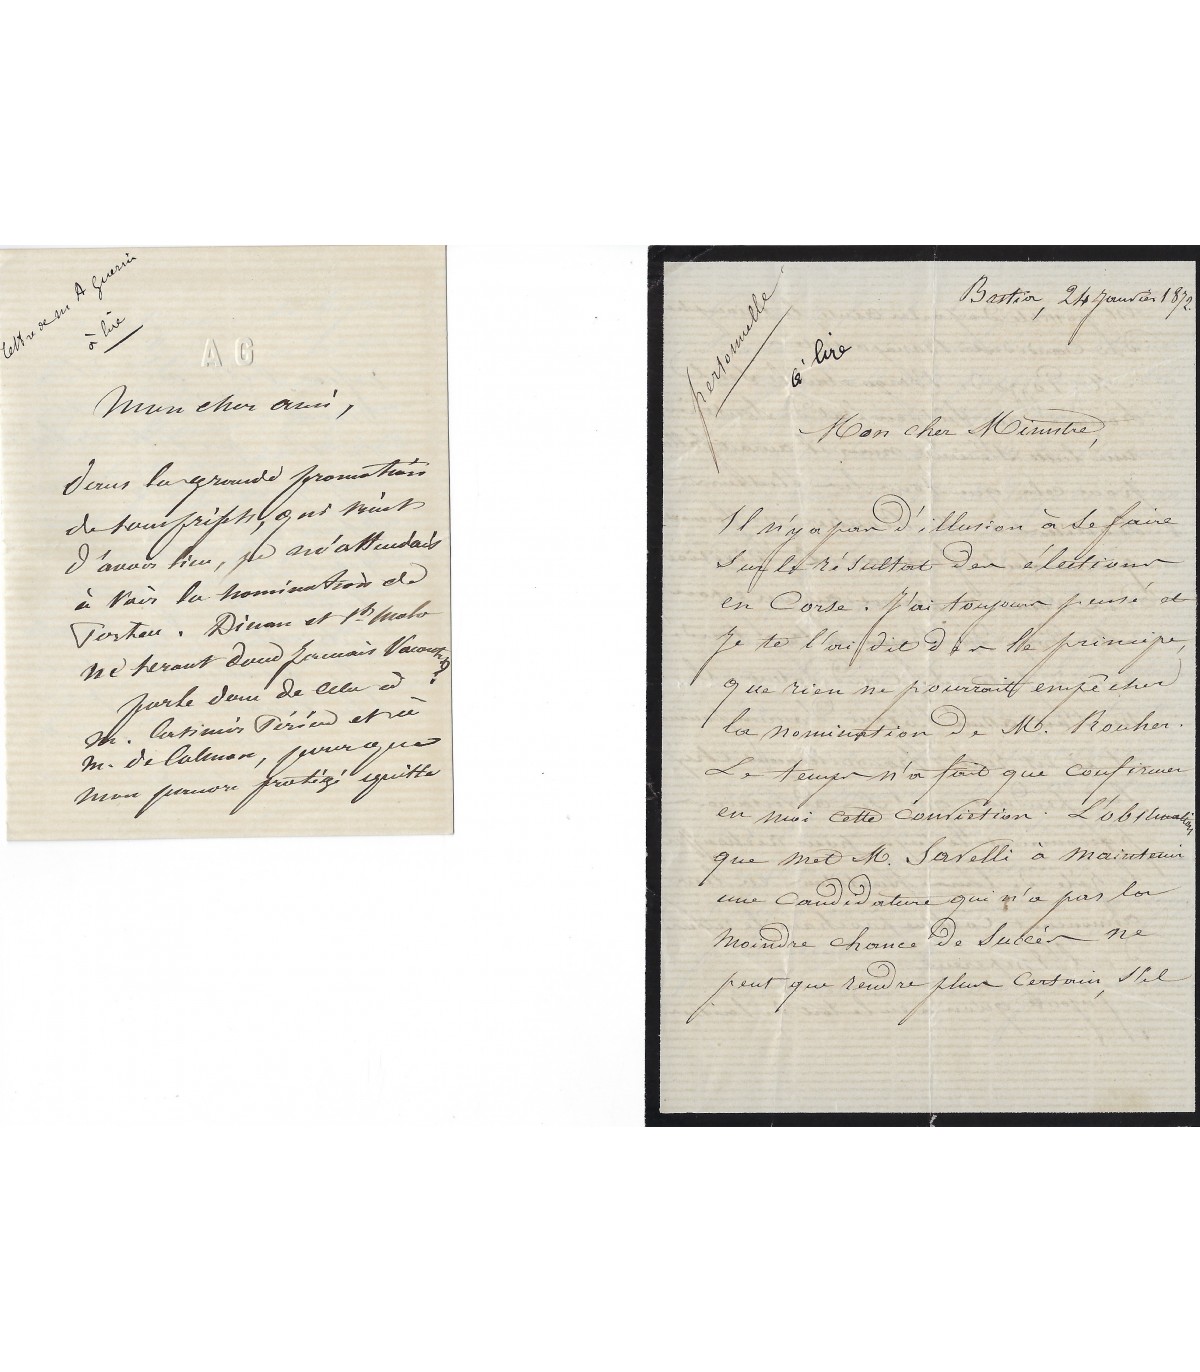 lettre de M A Guerin
à lire
AG
Mon cher ami,
Dans la grande promotion
de sous préfets, qui vient
d'avoir lieu, je m'attendais
à voir la nomination de
Dinan et St Malo
ne seront donc jamais vacants?
parle donc de cela à
M. Casimir Périer et à
M. de Calmon, pour que
mon pauvre protégé quitte
personnelle
à lire
Bastia, 24 Janvier 1872
Mon cher Ministre,
Il n'y a pas d'illusion à se faire
sur le résultat des élections
en Corse. J'ai toujours pensé et
je te l'ai dit dès le principe,
que rien ne pourrait empêcher
la nomination de M. Rouher.
Le temps n'a fait que confirmer
en moi cette conviction. L'obstination
que met M. Savelli à maintenir
une candidature qui n'a pas la
moindre chance de succès ne
peut que rendre plus certain, s'il